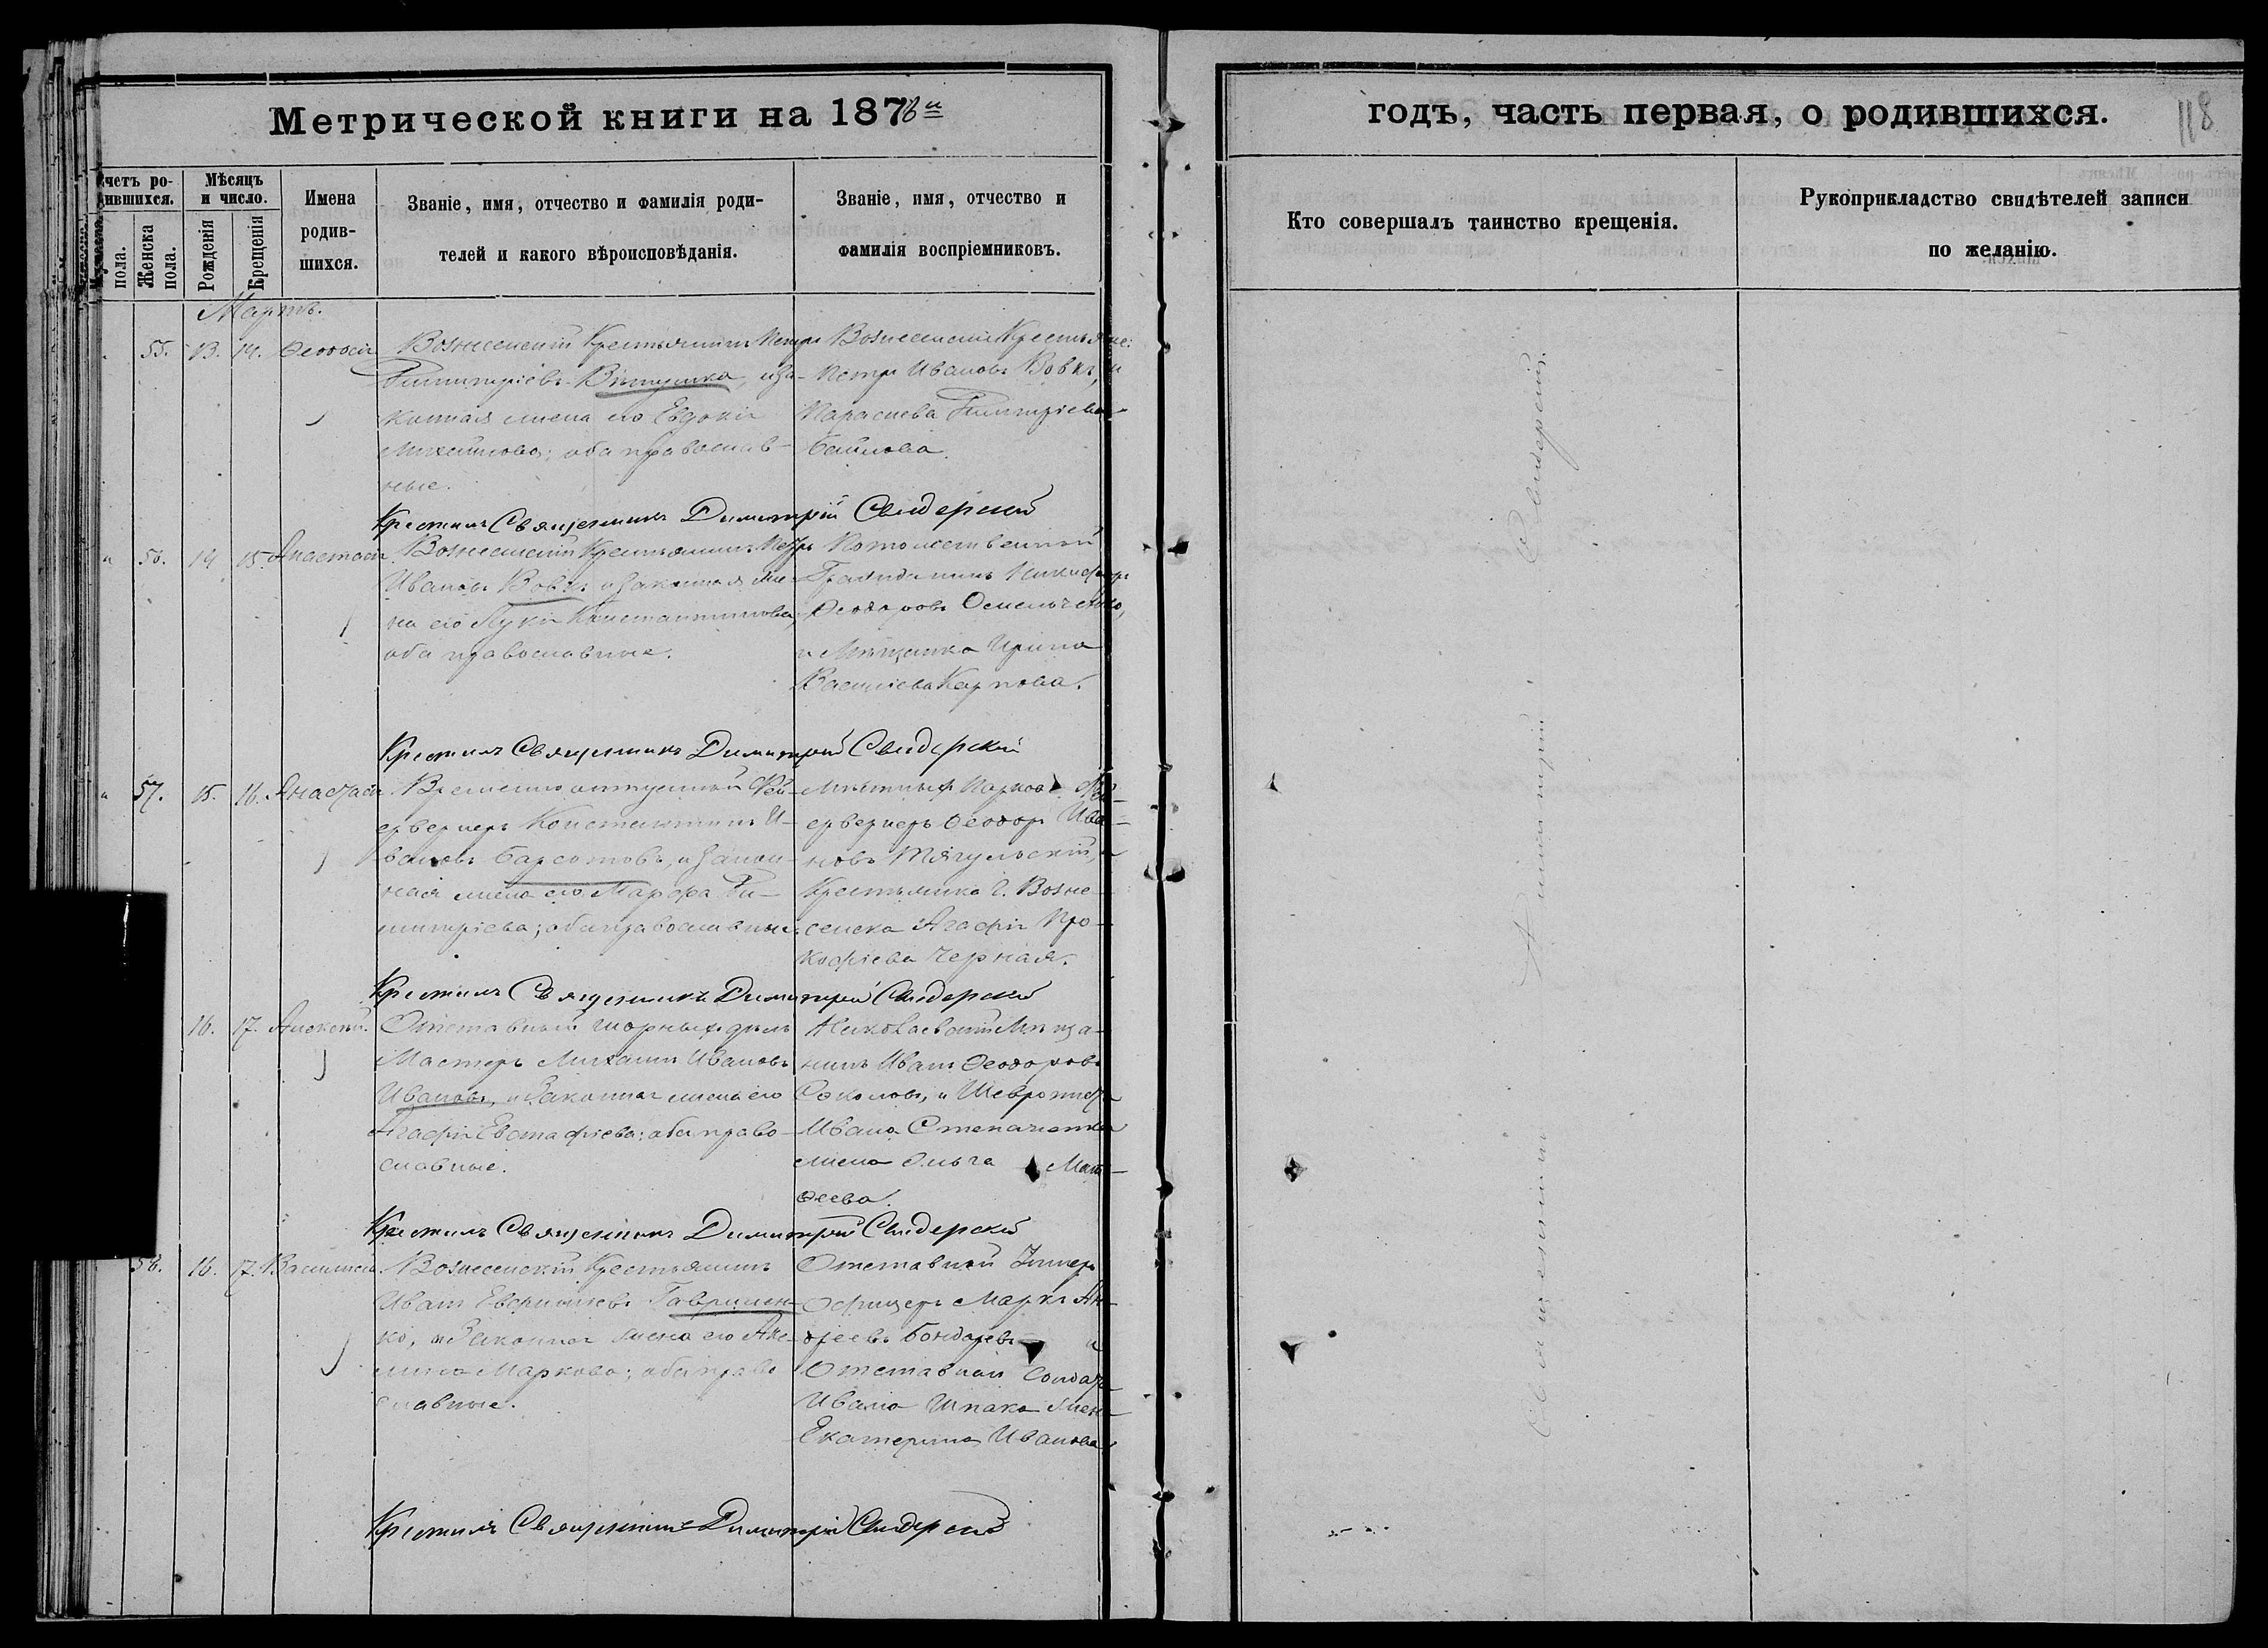 Метрической книги на 1878й
годъ, часть первая, о родившихся.
118
Счетъ ро-
дившихся.
Мѣсяцъ
и число.
Имена
родив-
шихся.
Званіе, имя, отчество и фамилія роди-
телей и какого вѣроисповѣданія.
Званіе, имя, отчество и
фамилія воспріемниковъ.
Кто совершалъ таинство крещенія.
Рукоприкладство свидѣтелей записи
по желанію.
Мужеска
пола.
Женска
пола.
Рожденія
Крещенія
Мартъ.
55. 13. 14. Ѳеодосія
Вознесенскій Крестьянинъ Петръ
Димитріевъ и за-
конная жена его Евдокія
Михайлова; оба православ-
ные.
Вознесенскіе Крестьяне:
Петръ Ивановъ Вовкъ, и
Параскева Димитріева
Крестилъ Священникъ Димитрій Свидерскій
56. 14 15. Анастасія
Вознесенскій Крестьянинъ Петръ
Ивановъ Вовкъ и законная же-
на его Лукія Константинова,
оба православные.
Потомственный
Гражданинъ Никифоръ
Ѳеодоровъ Омельченко,
и Мѣщанка Ирина
Василіева Карпова.
Крестилъ Священникъ Димитрій Свидерскій
57. 15. 16. Анастасія
Временно отпускной Фей-
ерверкеръ Константинъ И-
вановъ Барсотовъ, и закон-
ная жена его Марфа Ди-
митріева; оба православные.
Мѣстныхъ Парковъ Фей-
ерверкеръ Ѳеодоръ Ива-
новъ Тягульскій, и
Крестьянка г. Возне-
сенска Агафія Про-
кофіева Черная.
Крестилъ Священникъ Димитрій Свидерскій
16. 17. Алексій.
Отставный шорныхъ дѣлъ
Мастеръ Михаилъ Ивановъ
Ивановъ, и Законная жена его
Агафія Евстафіева; оба право-
славные.
Николаевскій Мѣща-
нинъ Иванъ Ѳеодоровъ
Соколовъ, и
Ивана Степаненка
жена Ольга Мат-
ѳеева.
Крестилъ Священникъ Димитрій Свидерскій
58. 16. 17. Василиса.
Вознесенскій Крестьянинъ
Иванъ Гаврилен-
ко, и Законная жена его Аке-
лина Маркова; оба право-
славные.
Отставной Унтеръ
Офицеръ Маркъ Ан-
дреевъ Бондаревъ и
Отставнаго Солдата
Ивана Шпака жена
Екатерина Иванова.
Крестилъ Священникъ Димитрій Свидерскій
Священникъ Димитрій Свидерскій.